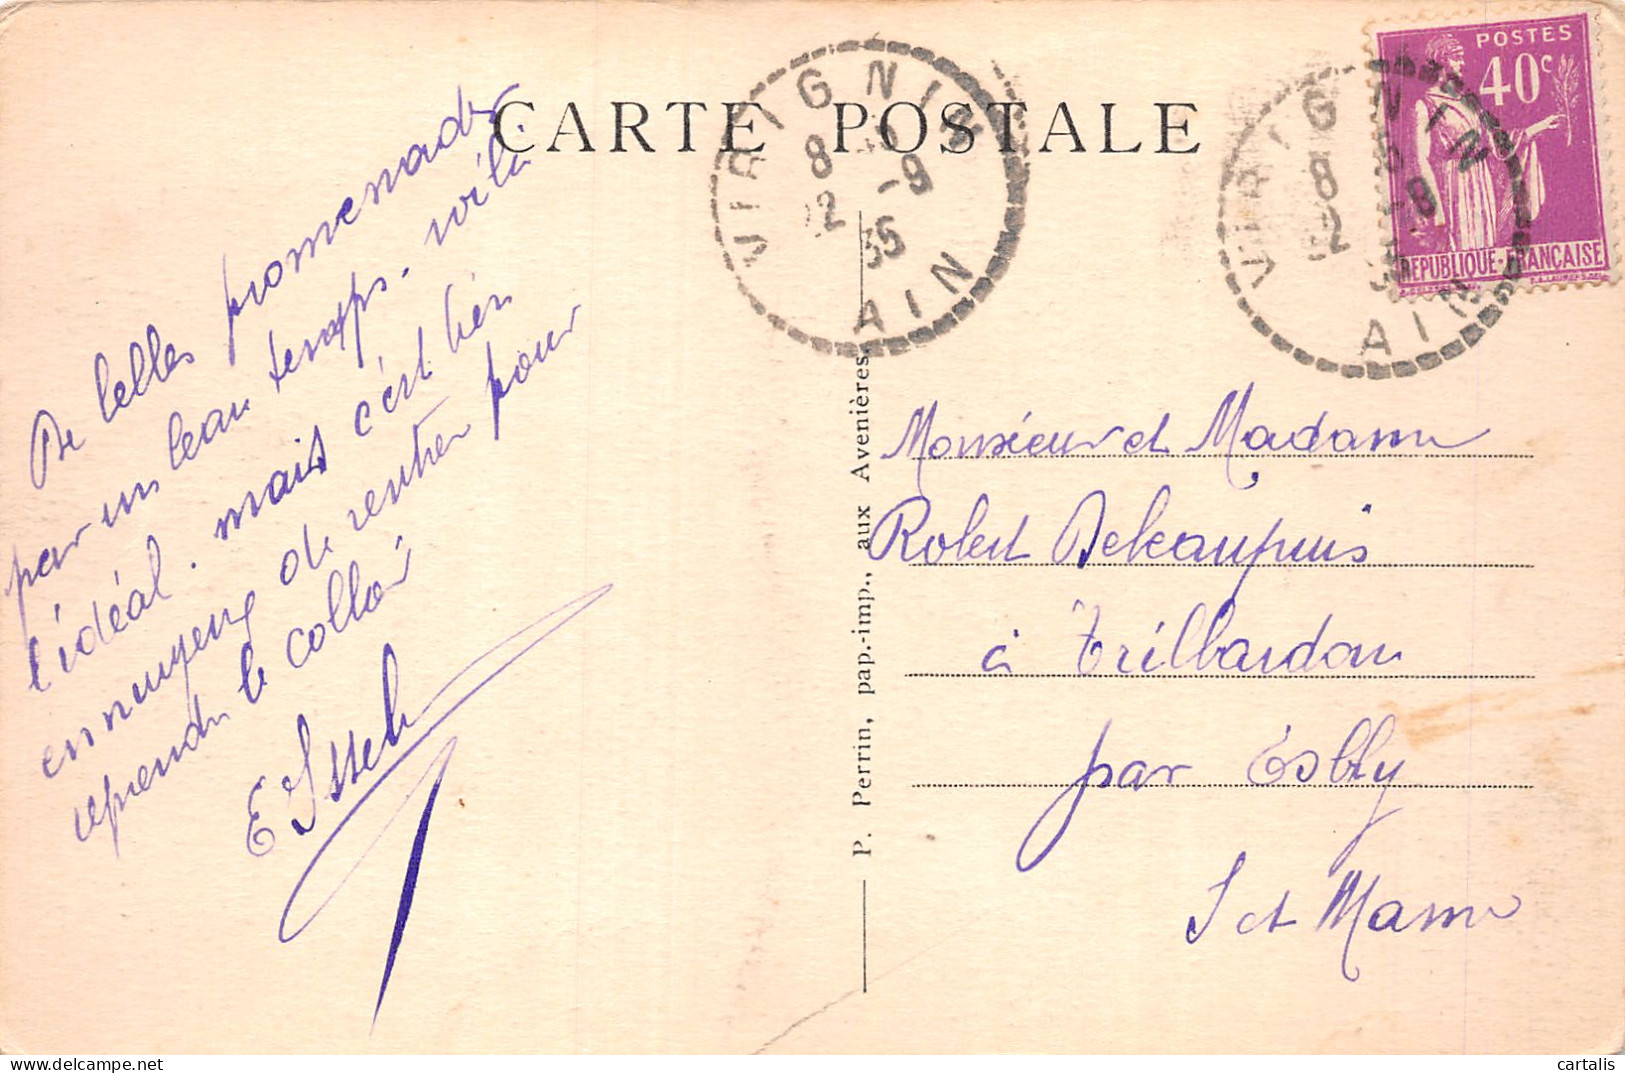 CARTE POSTALE
VIRIGNIN
8
12 -8
35
AIN
VIRIGNIN
8
12 -8
AIN
POSTES
40c
REPUBLIQUE-FRANÇAISE
De belles promenades
par un beau temps. voilà
l'idéal. mais c'est bien
ennuyeux de rentrer pour
reprendre le collier
P. Perrin, pap.-imp., aux Avenières.
Monsieur et Madame
Robert
à Trilbardou
par Esbly
S et Marne
cartalis